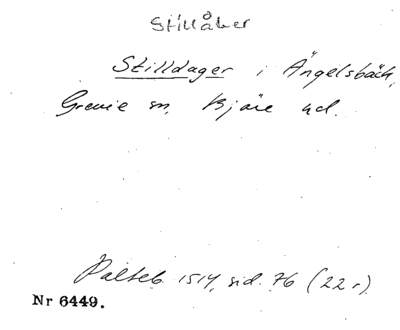 Stillåker
Stilldager i Ängelsbäck,
Grevie sn, Bjäre hd.
Palteb. 1514, sid. 76 (22 r).
Nr 6449.